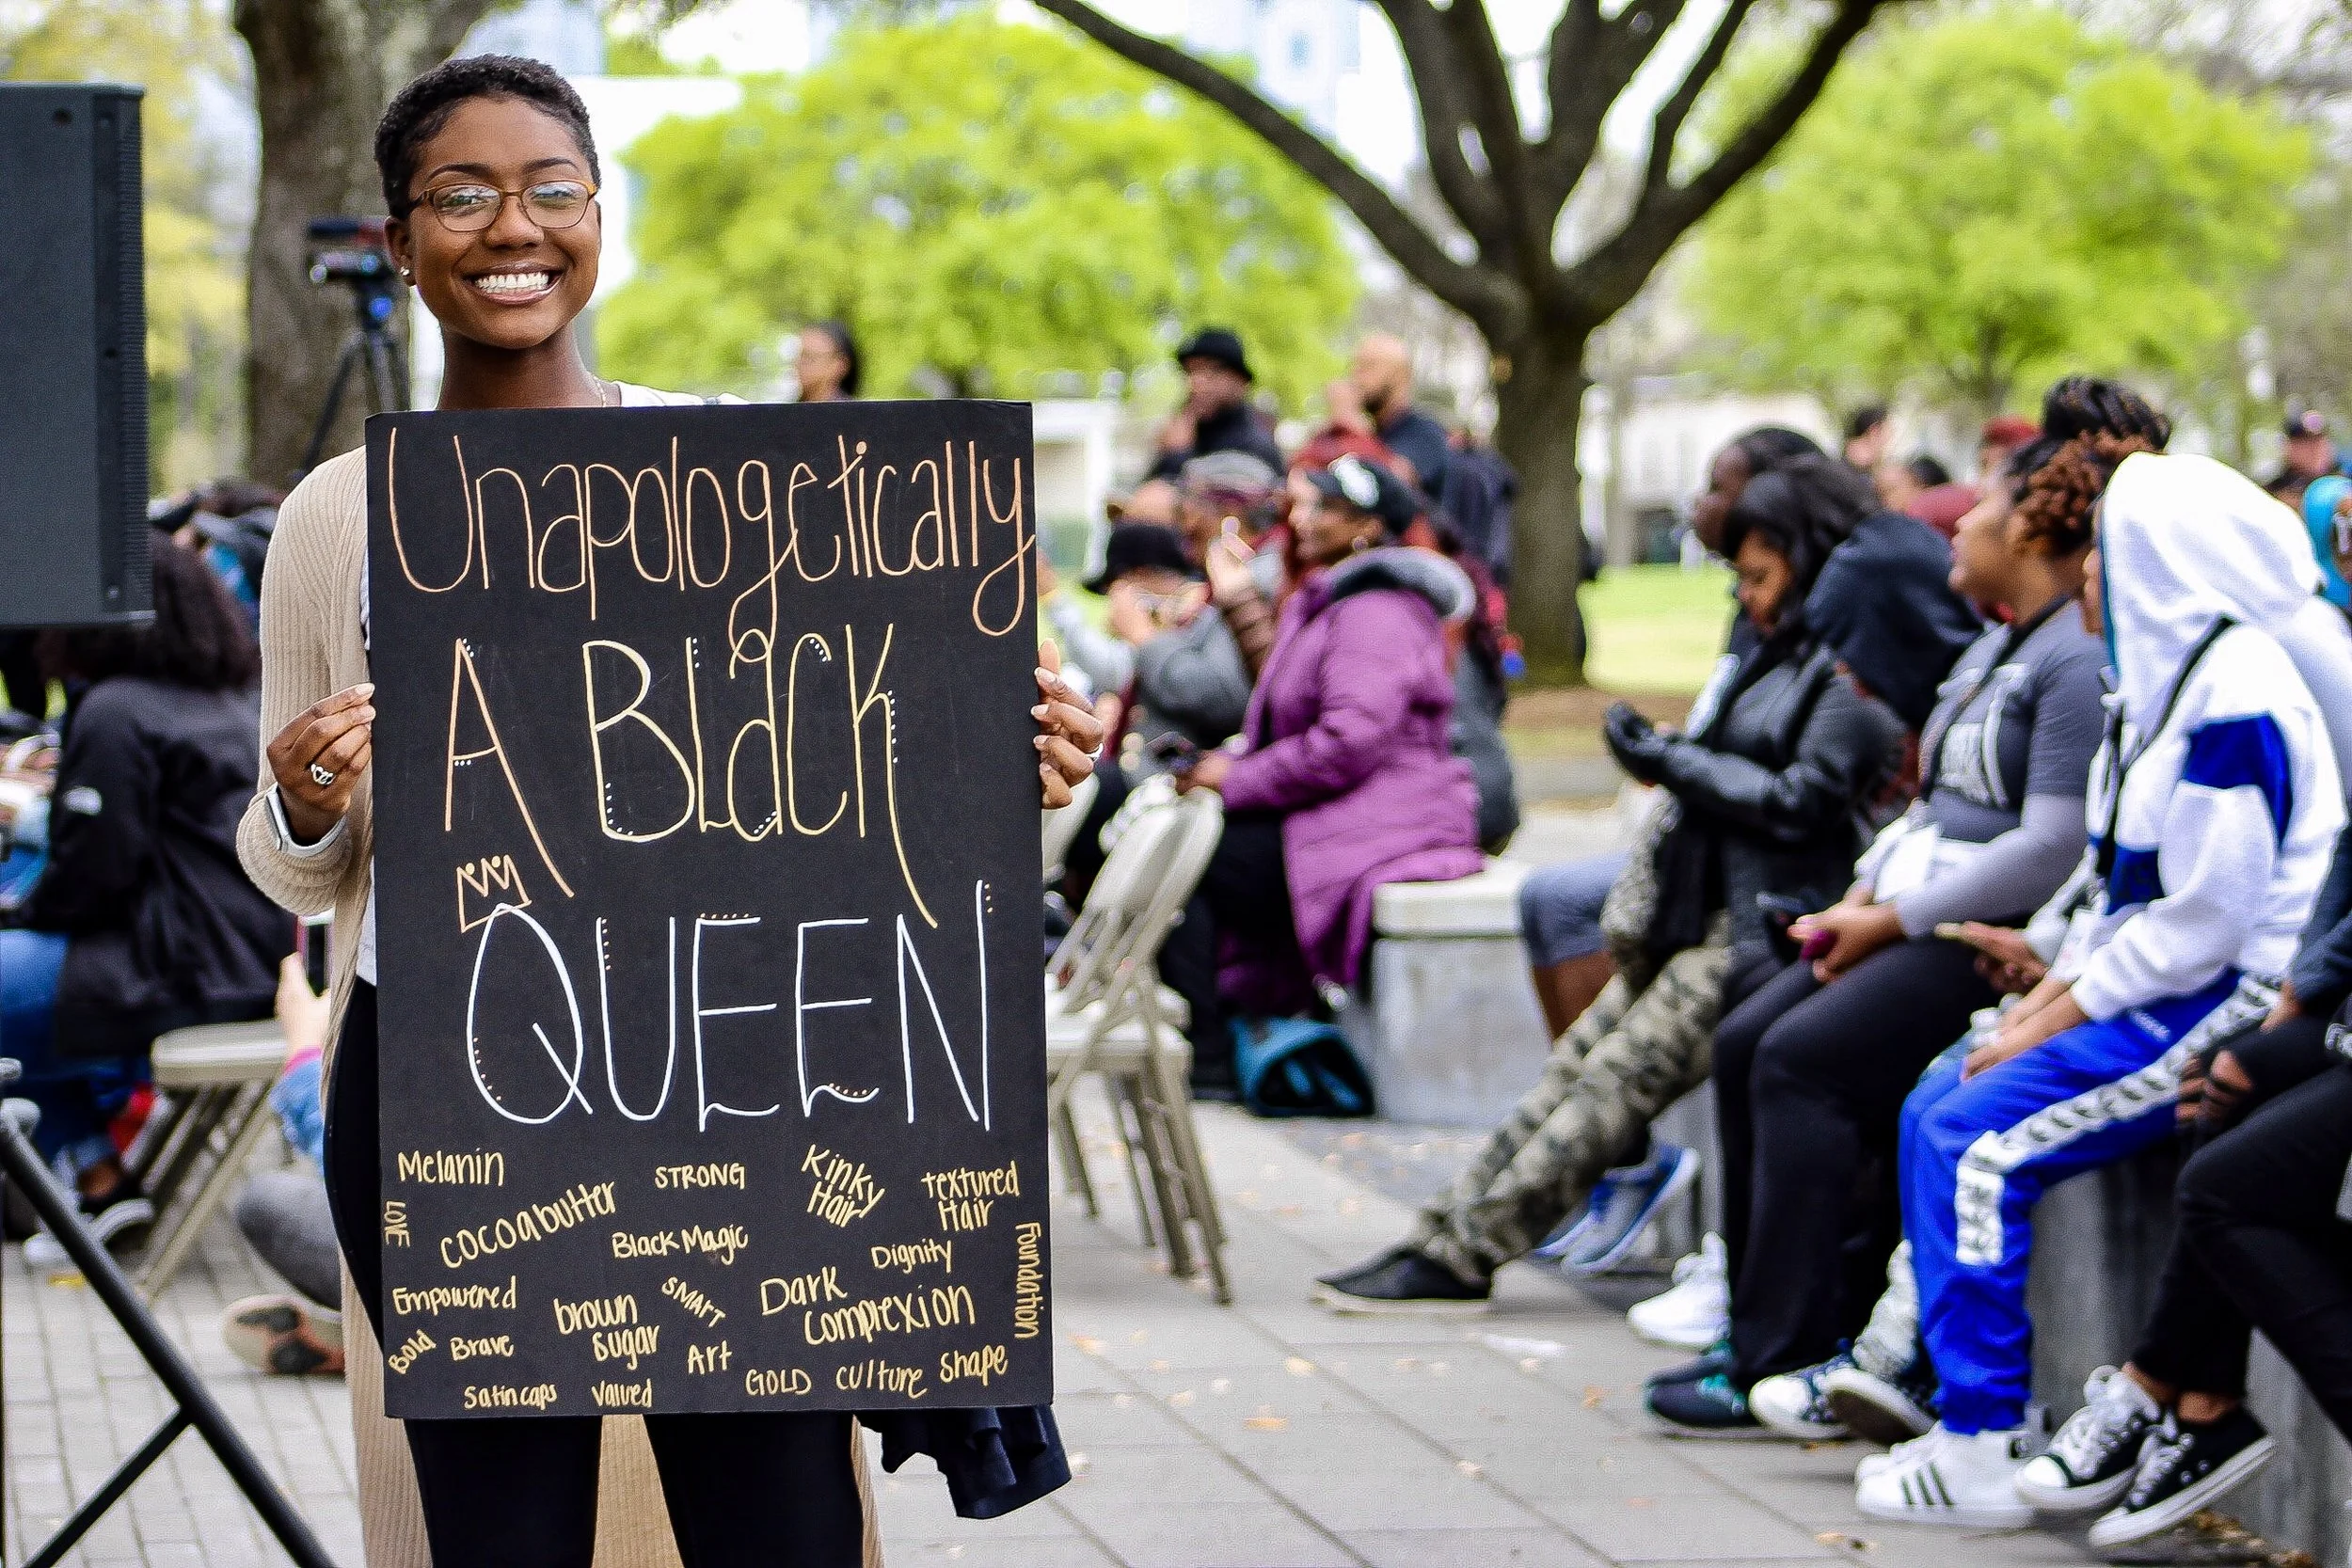 Unapologetically
A Black
QUEEN
Melanin
STRONG
Kinky
Hair
textured
Hair
LOVE
cocoabutter
Black Magic
Dignity
Foundation
Empowered
brown
sugar
SMArT
Dark
complexion
Bold
Brave
Art
GOLD
culture
shape
Satin caps
Valued